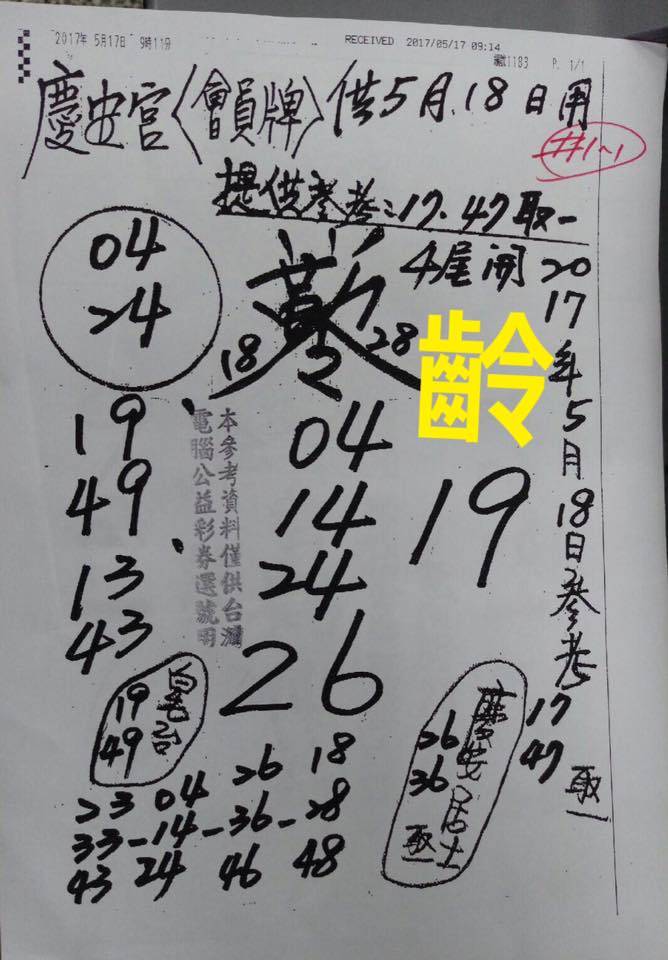 2017年 5月17日 9時11分
RECEIVED 2017/05/17 09:14
1183 P. 1/1
慶安宮〈會員牌〉供5月18日用
#1~1
提供參考:17.47取一
4尾開
2017年5月18日參考
17
47
取一
04
24
18
28
齡
19
49
13
43
04
14
24
26
19
本參考資料僅供台灣
電腦公益彩券選號明
19
49
慶安居士
26
36
取一
23 04 26 18
33-14-36-28
43 24 46 48